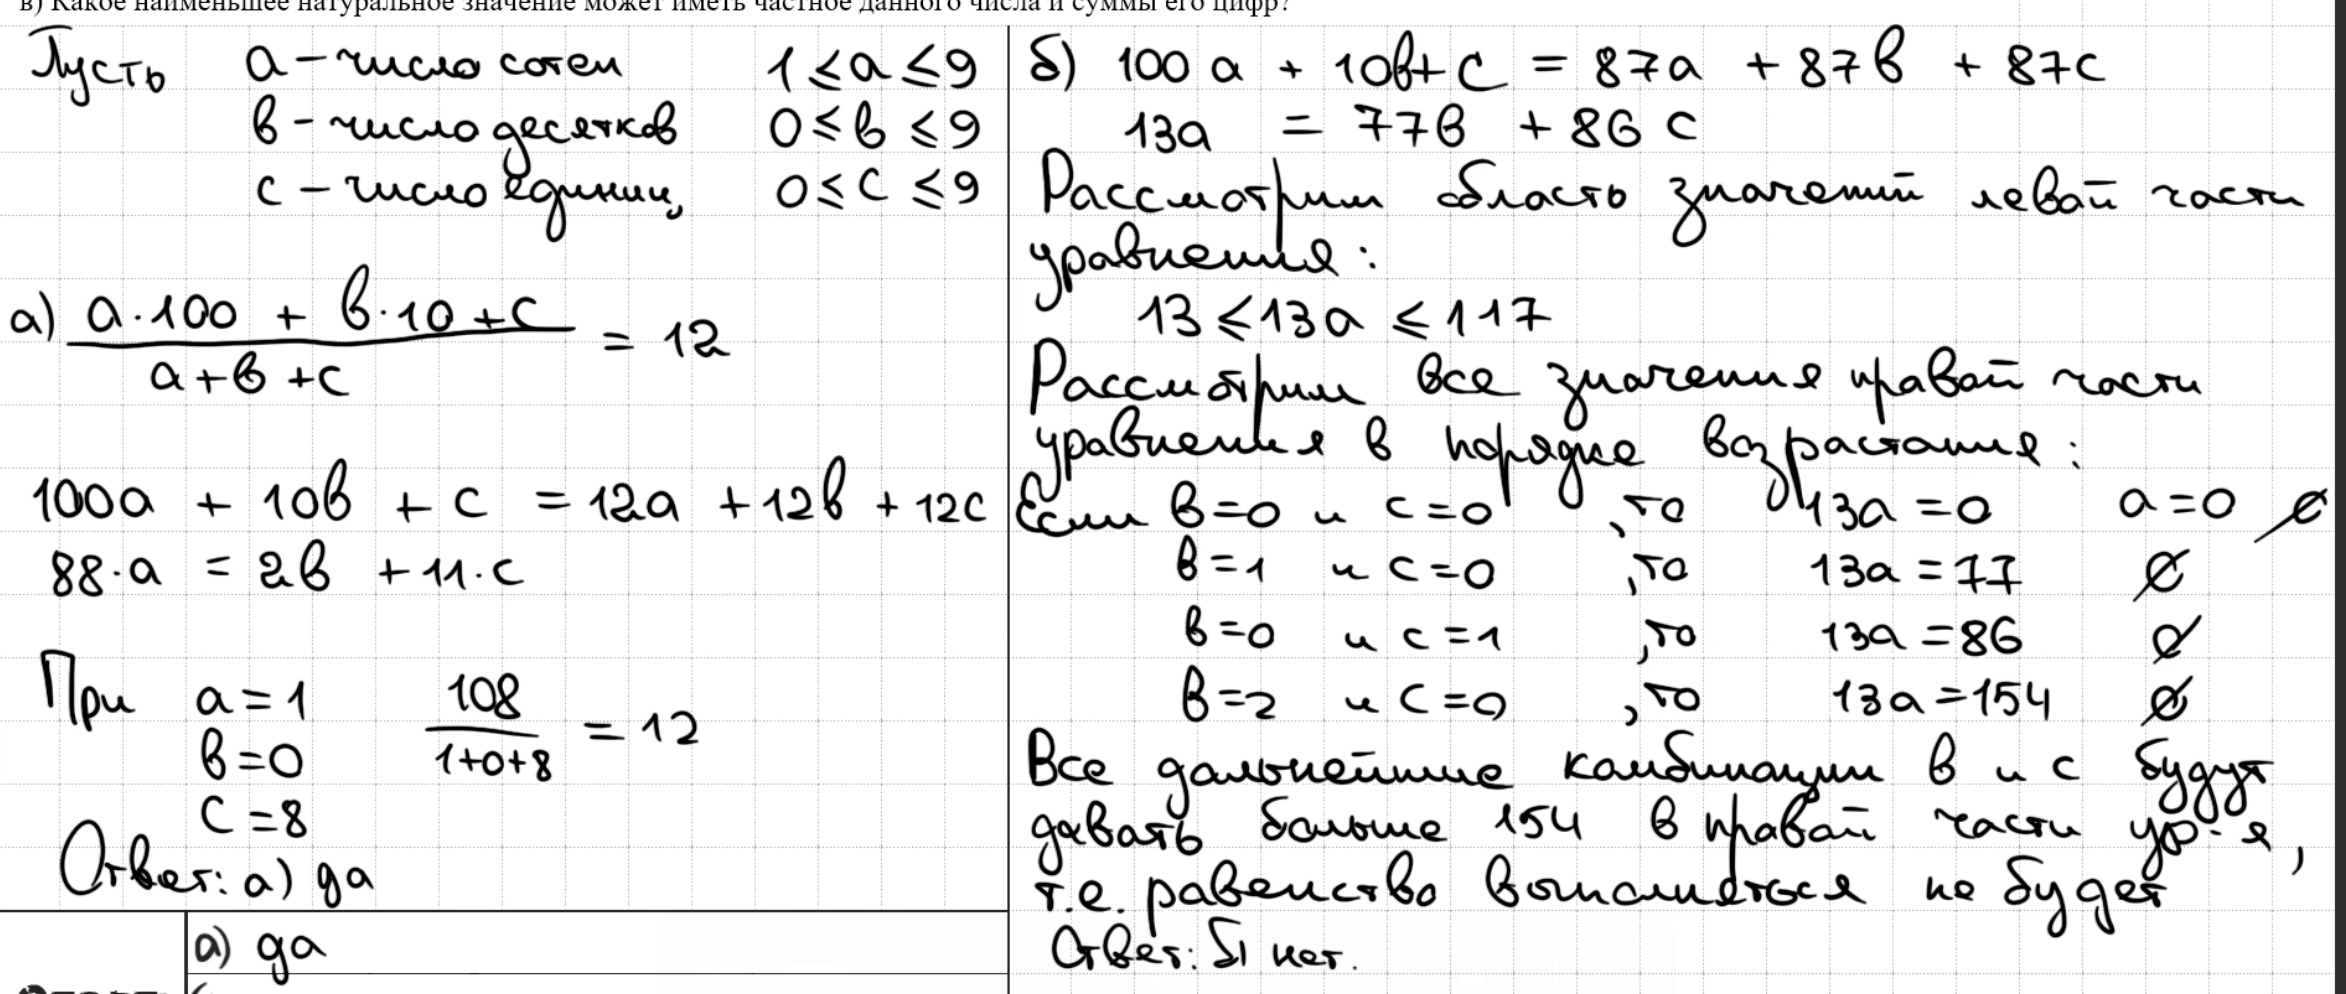 в) Какое наименьшее натуральное значение может иметь частное данного числа и суммы его цифр?
Пусть a – число сотен 1 ≤ a ≤ 9
в – число десятков 0 ≤ в ≤ 9
с – число единиц, 0 ≤ с ≤ 9
а) (a·100 + в·10 + с)/(a + в + с) = 12
100a + 10в + с = 12a + 12в + 12с
88·a = 2в + 11·с
При a = 1 108/(1+0+8) = 12
в = 0
с = 8
Ответ: а) да
а) да
б) 100 a + 10в + с = 87a + 87в + 87с
13a = 77в + 86 с
Рассмотрим область значений левой части
уравнения:
13 ≤ 13a ≤ 117
Рассмотрим все значения правой части
уравнения в порядке возрастания:
Если в=0 и с=0 , то 13a = 0 a = 0 ∅
в=1 и с=0 , то 13a = 77 ∅
в=0 и с=1 , то 13a = 86 ∅
в=2 и с=0 , то 13a = 154 ∅
Все дальнейшие комбинации в и с будут
давать больше 154 в правой части ур-я,
т.е. равенство выполняться не будет
Ответ: б) нет.